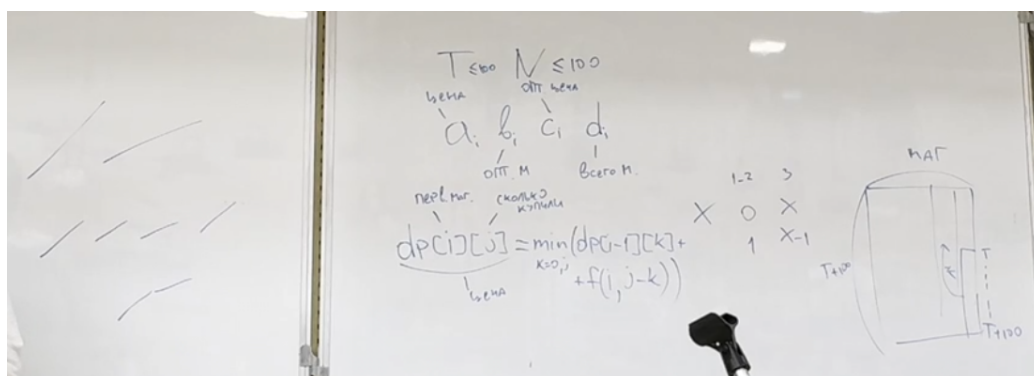 T ≤ 100 N ≤ 100
цена опт. цена
a_i b_i c_i d_i
опт. м всего м.
перв. маг. сколько купили
dp[i][j] = min(dp[i-1][k] +
k=0,j
+ f(i, j-k))
цена
1-2 3
X 0 X
1 X-1
МАГ
T+100
T
T+100